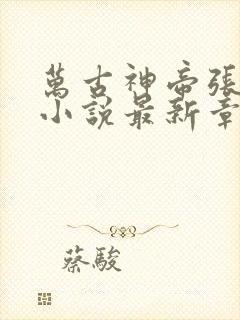 萬古神帝張
小說最新章
蔡駿